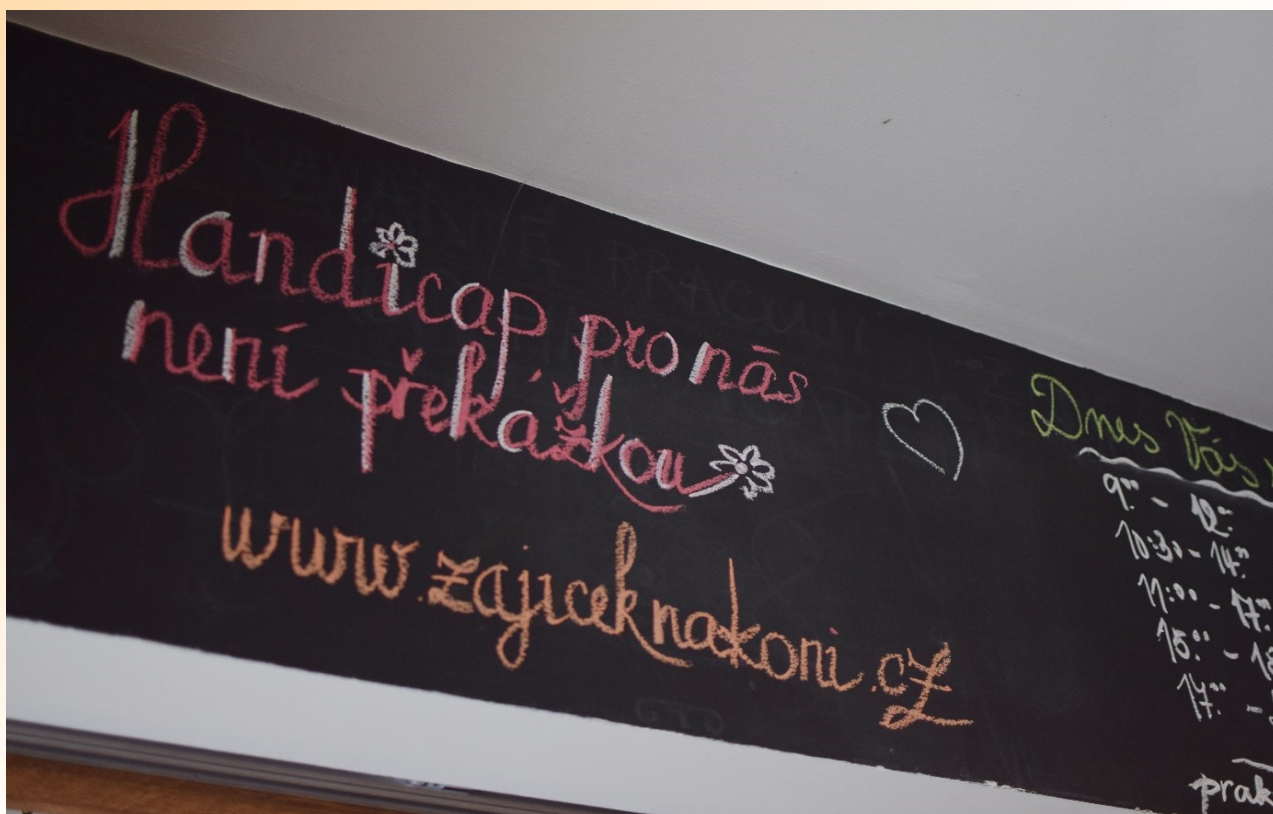 Handicap pro nás
není překážkou
www.zajiceknakoni.cz
Dnes Vás
9:00 - 12:00
10:30 - 14:00
11:00 - 17:00
15:00 -
17:00 -